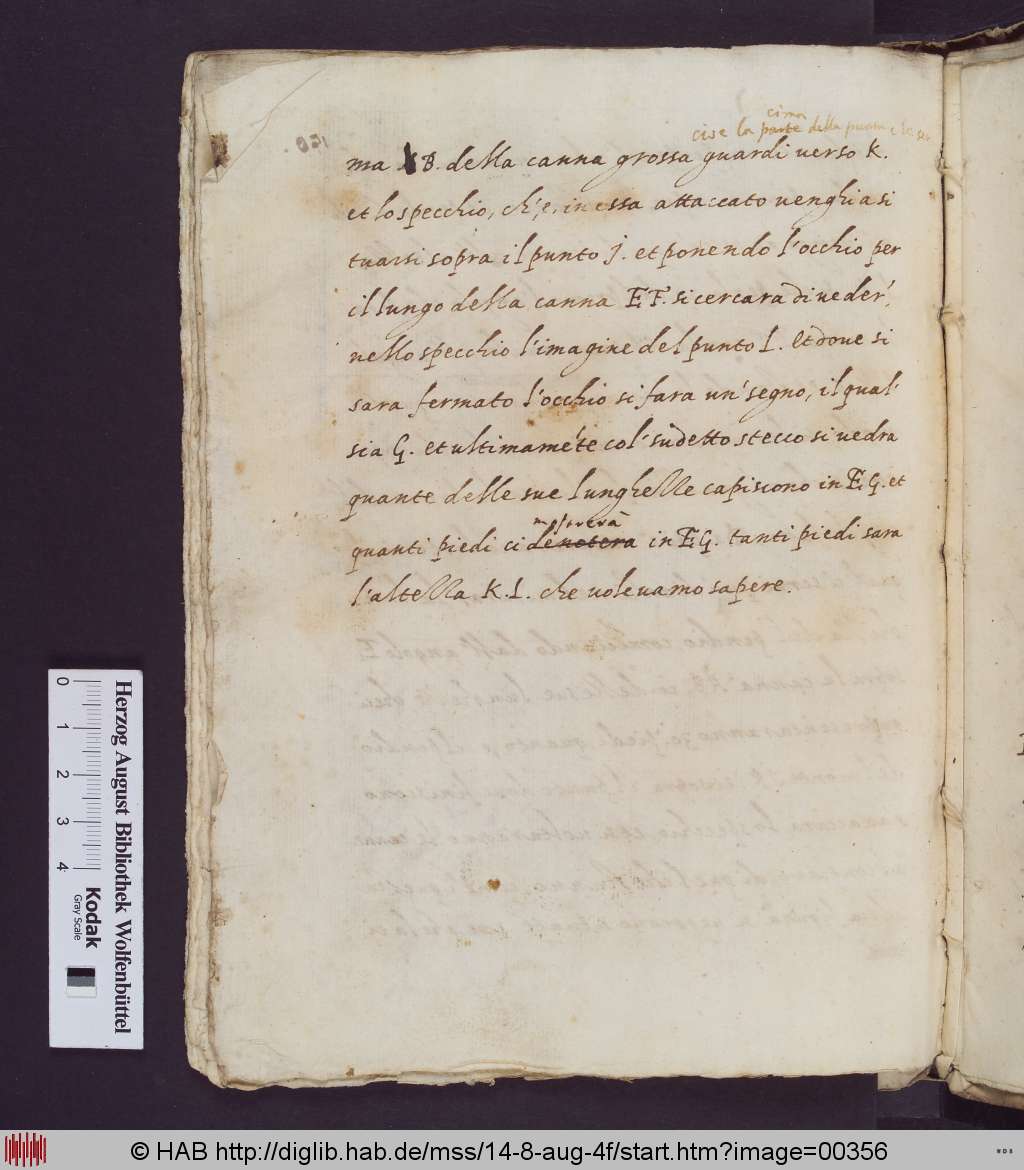 cima
cise la parte della punta
ma B. della canna grossa guardi verso K.
et lo specchio, ch'e, in essa attaccato venghi a si
tuarsi sopra il punto J. et ponendo l'occhio per
il lungo della canna EF. si cercara di veder',
nello specchio l'imagine del punto L. Et dove si
sara fermato l'occhio si fara un' segno, il qual'
sia G. et ultimamẽte col' sudetto stecco si vedra
quante delle sue lunghelle capiscono in E.G. et
mostrerà
quanti piedi ci denotera in E.G. tanti piedi sara
l'altella K.L. che volevamo sapere.
0 1 2 3 4
Herzog August Bibliothek Wolfenbüttel
Kodak
Gray Scale
© HAB http://diglib.hab.de/mss/14-8-aug-4f/start.htm?image=00356